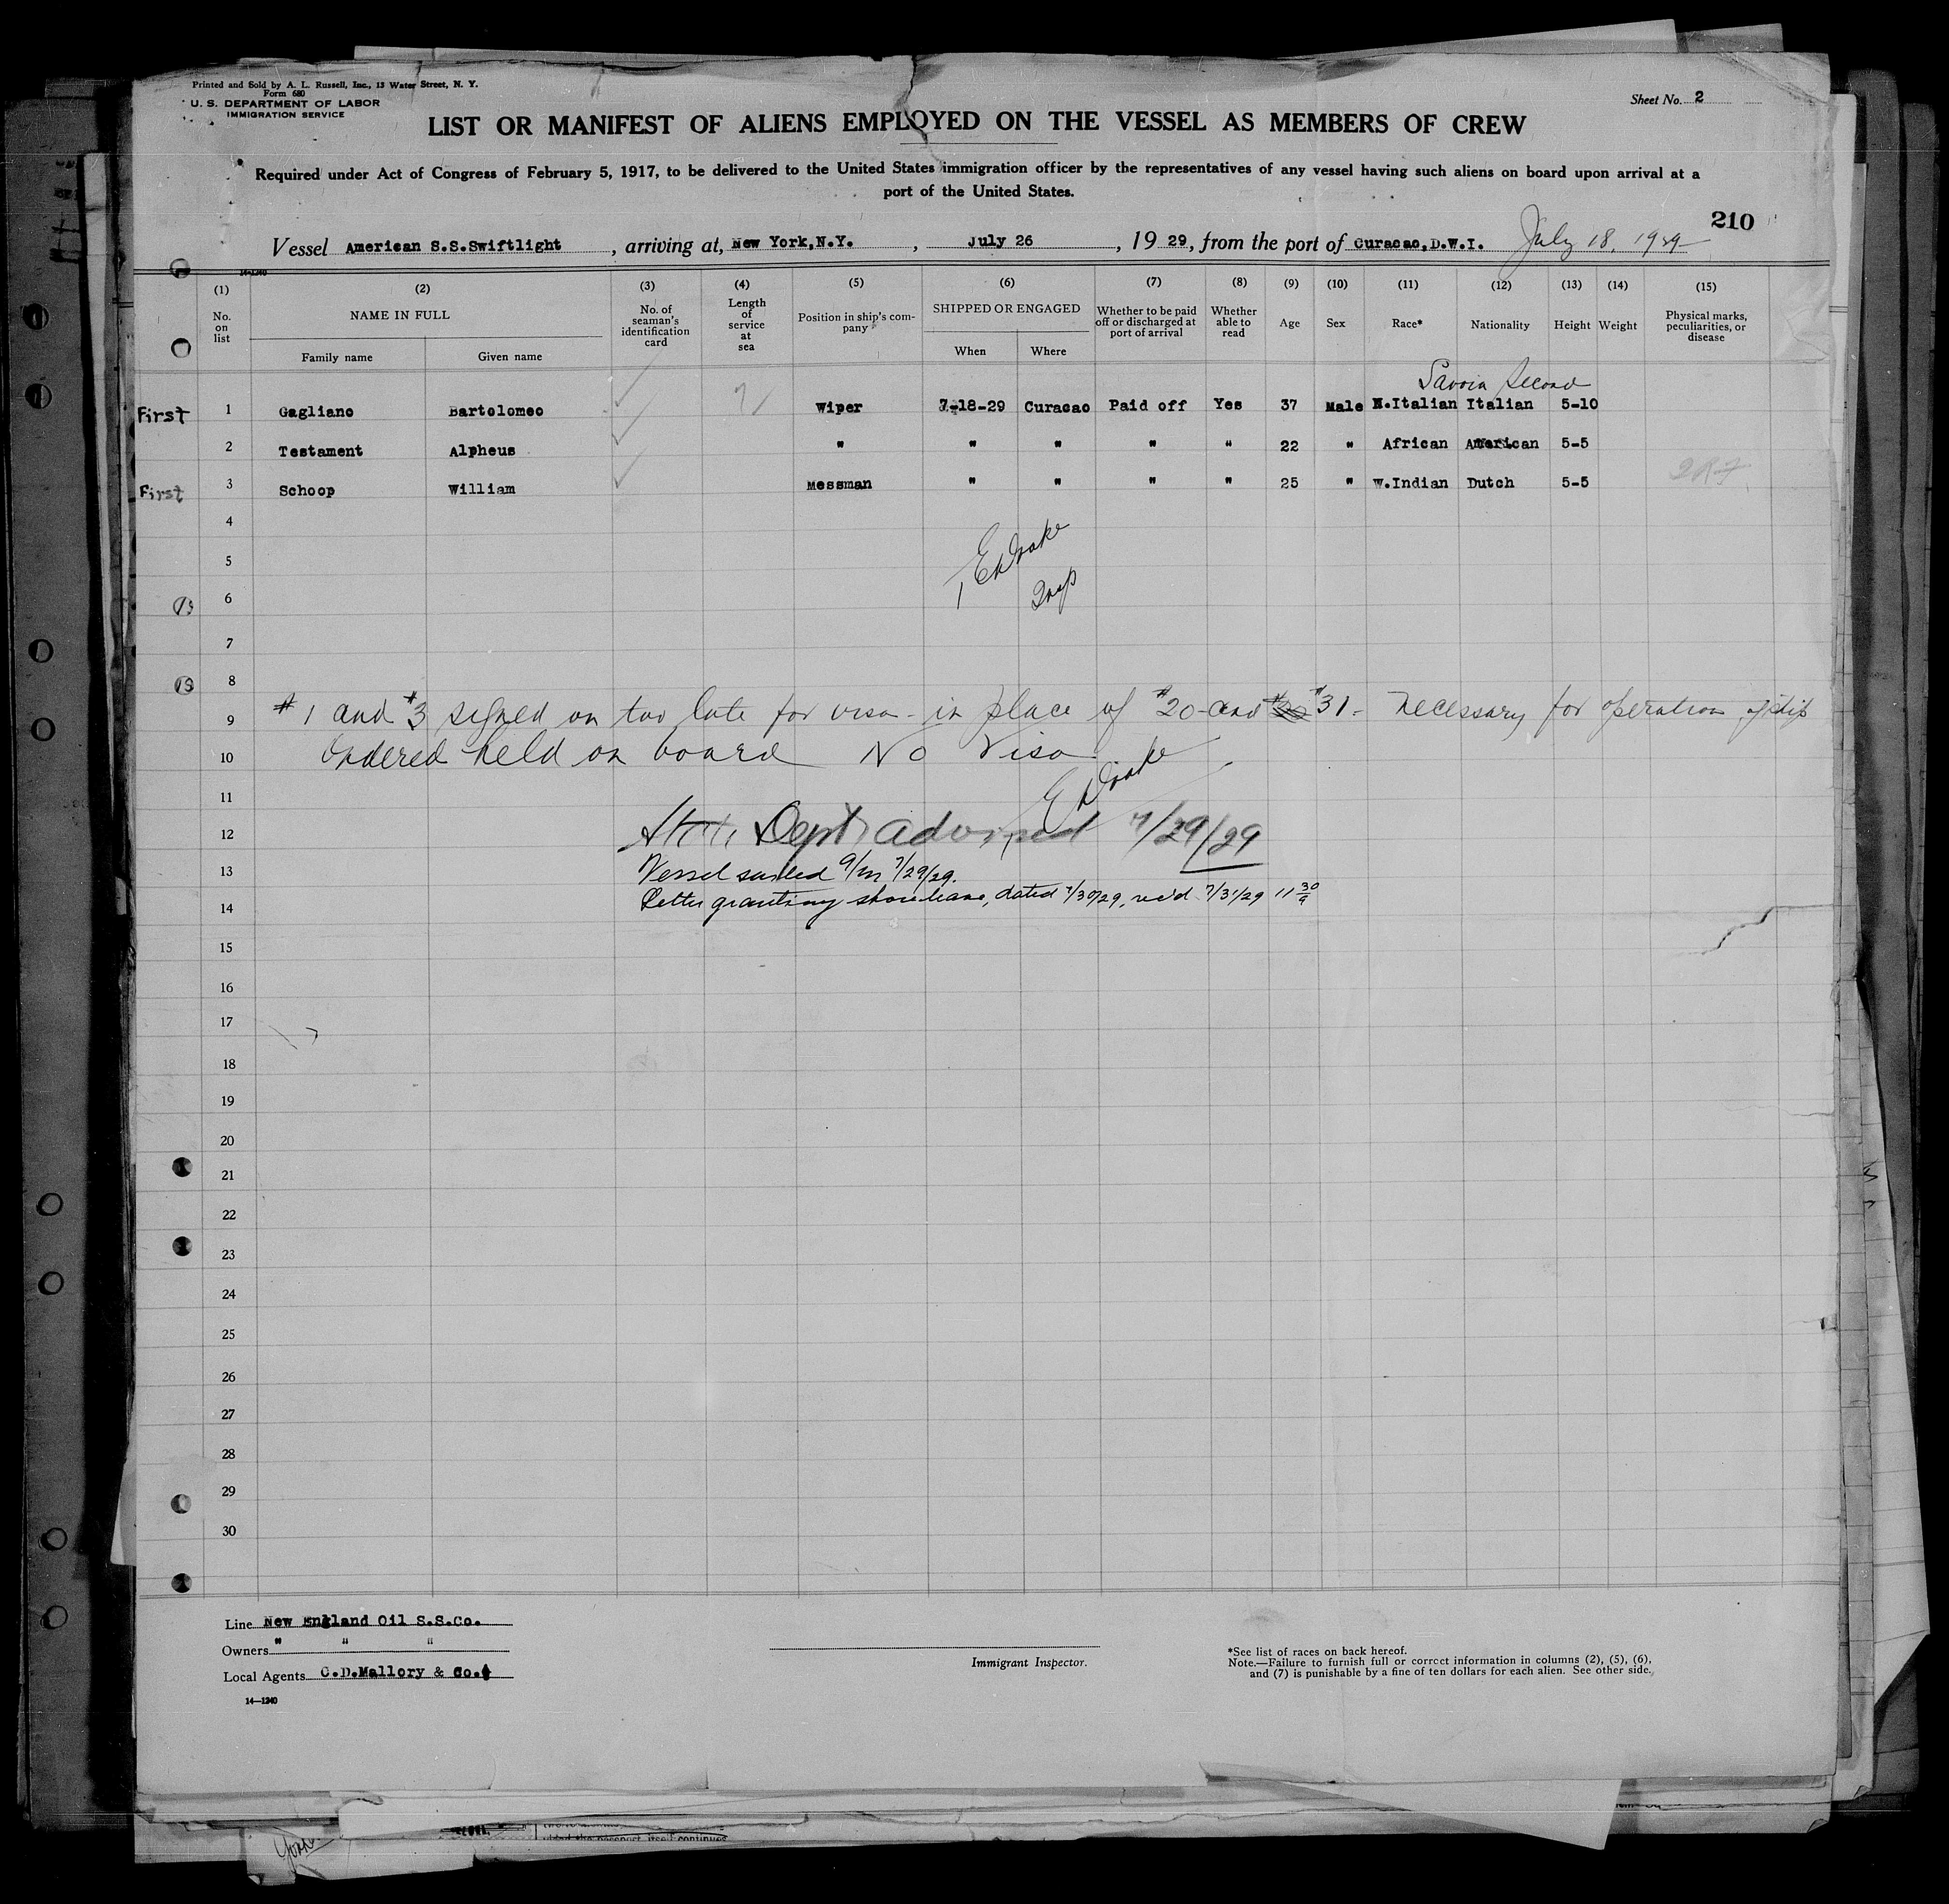 Printed and Sold by A. L. Russell, Inc., 13 Water Street, N. Y.
Form 680
U. S. DEPARTMENT OF LABOR
IMMIGRATION SERVICE
Sheet No. 2
LIST OR MANIFEST OF ALIENS EMPLOYED ON THE VESSEL AS MEMBERS OF CREW
Required under Act of Congress of February 5, 1917, to be delivered to the United States immigration officer by the representatives of any vessel having such aliens on board upon arrival at a
port of the United States.
210
Vessel American S.S.Swiftlight, arriving at, New York,N.Y., July 26, 19 29, from the port of Curacao,D.W.I. July 18, 1929
14-1240
(1) (2) (3) (4) (5) (6) (7) (8) (9) (10) (11) (12) (13) (14) (15)
No. on list NAME IN FULL Family name Given name No. of seaman's identification card Length of service at sea Position in ship's company SHIPPED OR ENGAGED When Where Whether to be paid off or discharged at port of arrival Whether able to read Age Sex Race* Nationality Height Weight Physical marks, peculiarities, or disease
Savoia Second
First 1 Gagliano Bartolomeo Wiper 7-18-29 Curacao Paid off Yes 37 Male N.Italian Italian 5-10
2 Testament Alpheus " " " " " 22 " African American 5-5
First 3 Schoop William Messman " " " " 25 " W.Indian Dutch 5-5
4
5 E Drake
6 Insp
7
8
9 #1 and #3 signed on too late for visa - in place of #20 and #31 - necessary for operation of ship
10 Ordered held on board No Visa
11 E Drake
12 State Dept advised 7/29/29
13 Vessel sailed 9/m 7/29/29.
14 Letter granting shore leave, dated 7/30/29, rec'd 7/31/29 11 30/a
15
16
17
18
19
20
21
22
23
24
25
26
27
28
29
30
Line New England Oil S.S.Co.
Owners " " "
Local Agents C.D.Mallory & Co.
14—1240
Immigrant Inspector.
*See list of races on back hereof.
Note.—Failure to furnish full or correct information in columns (2), (5), (6),
and (7) is punishable by a fine of ten dollars for each alien. See other side.